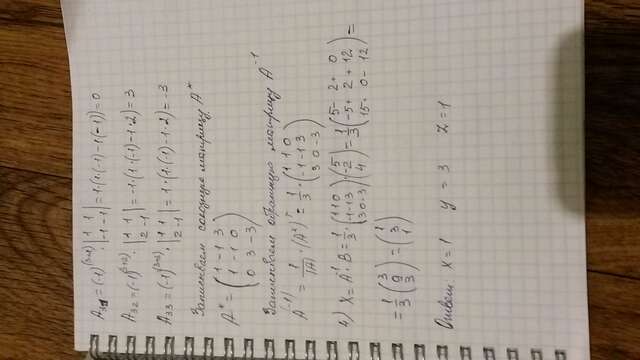 A₃₁=(-1)⁽³⁺¹⁾·|1 1; -1 -1|=1·(1·(-1)-1·(-1))=0
A₃₂=(-1)⁽³⁺²⁾·|1 1; 2 -1|=-1·(1·(-1)-1·2)=3
A₃₃=(-1)⁽³⁺³⁾·|1 1; 2 -1|=1·(1·(-1)-1·2)=-3
Записываем союзную матрицу A*
A*=(1 -1 3; 1 -1 0; 0 3 -3)
Записываем обратную матрицу A⁻¹
A⁽⁻¹⁾=1/|A|·(A*)ᵀ=1/3·(1 1 0; -1 -1 3; 3 0 -3)
4) X=A⁻¹·B=1/3·(1 1 0; -1 -1 3; 3 0 -3)·(5; -2; 4)=1/3(5- 2+ 0; -5+ 2+ 12; 15+ 0- 12)=
=1/3(3; 9; 3)=(1; 3; 1)
Ответ: x=1 y=3 z=1